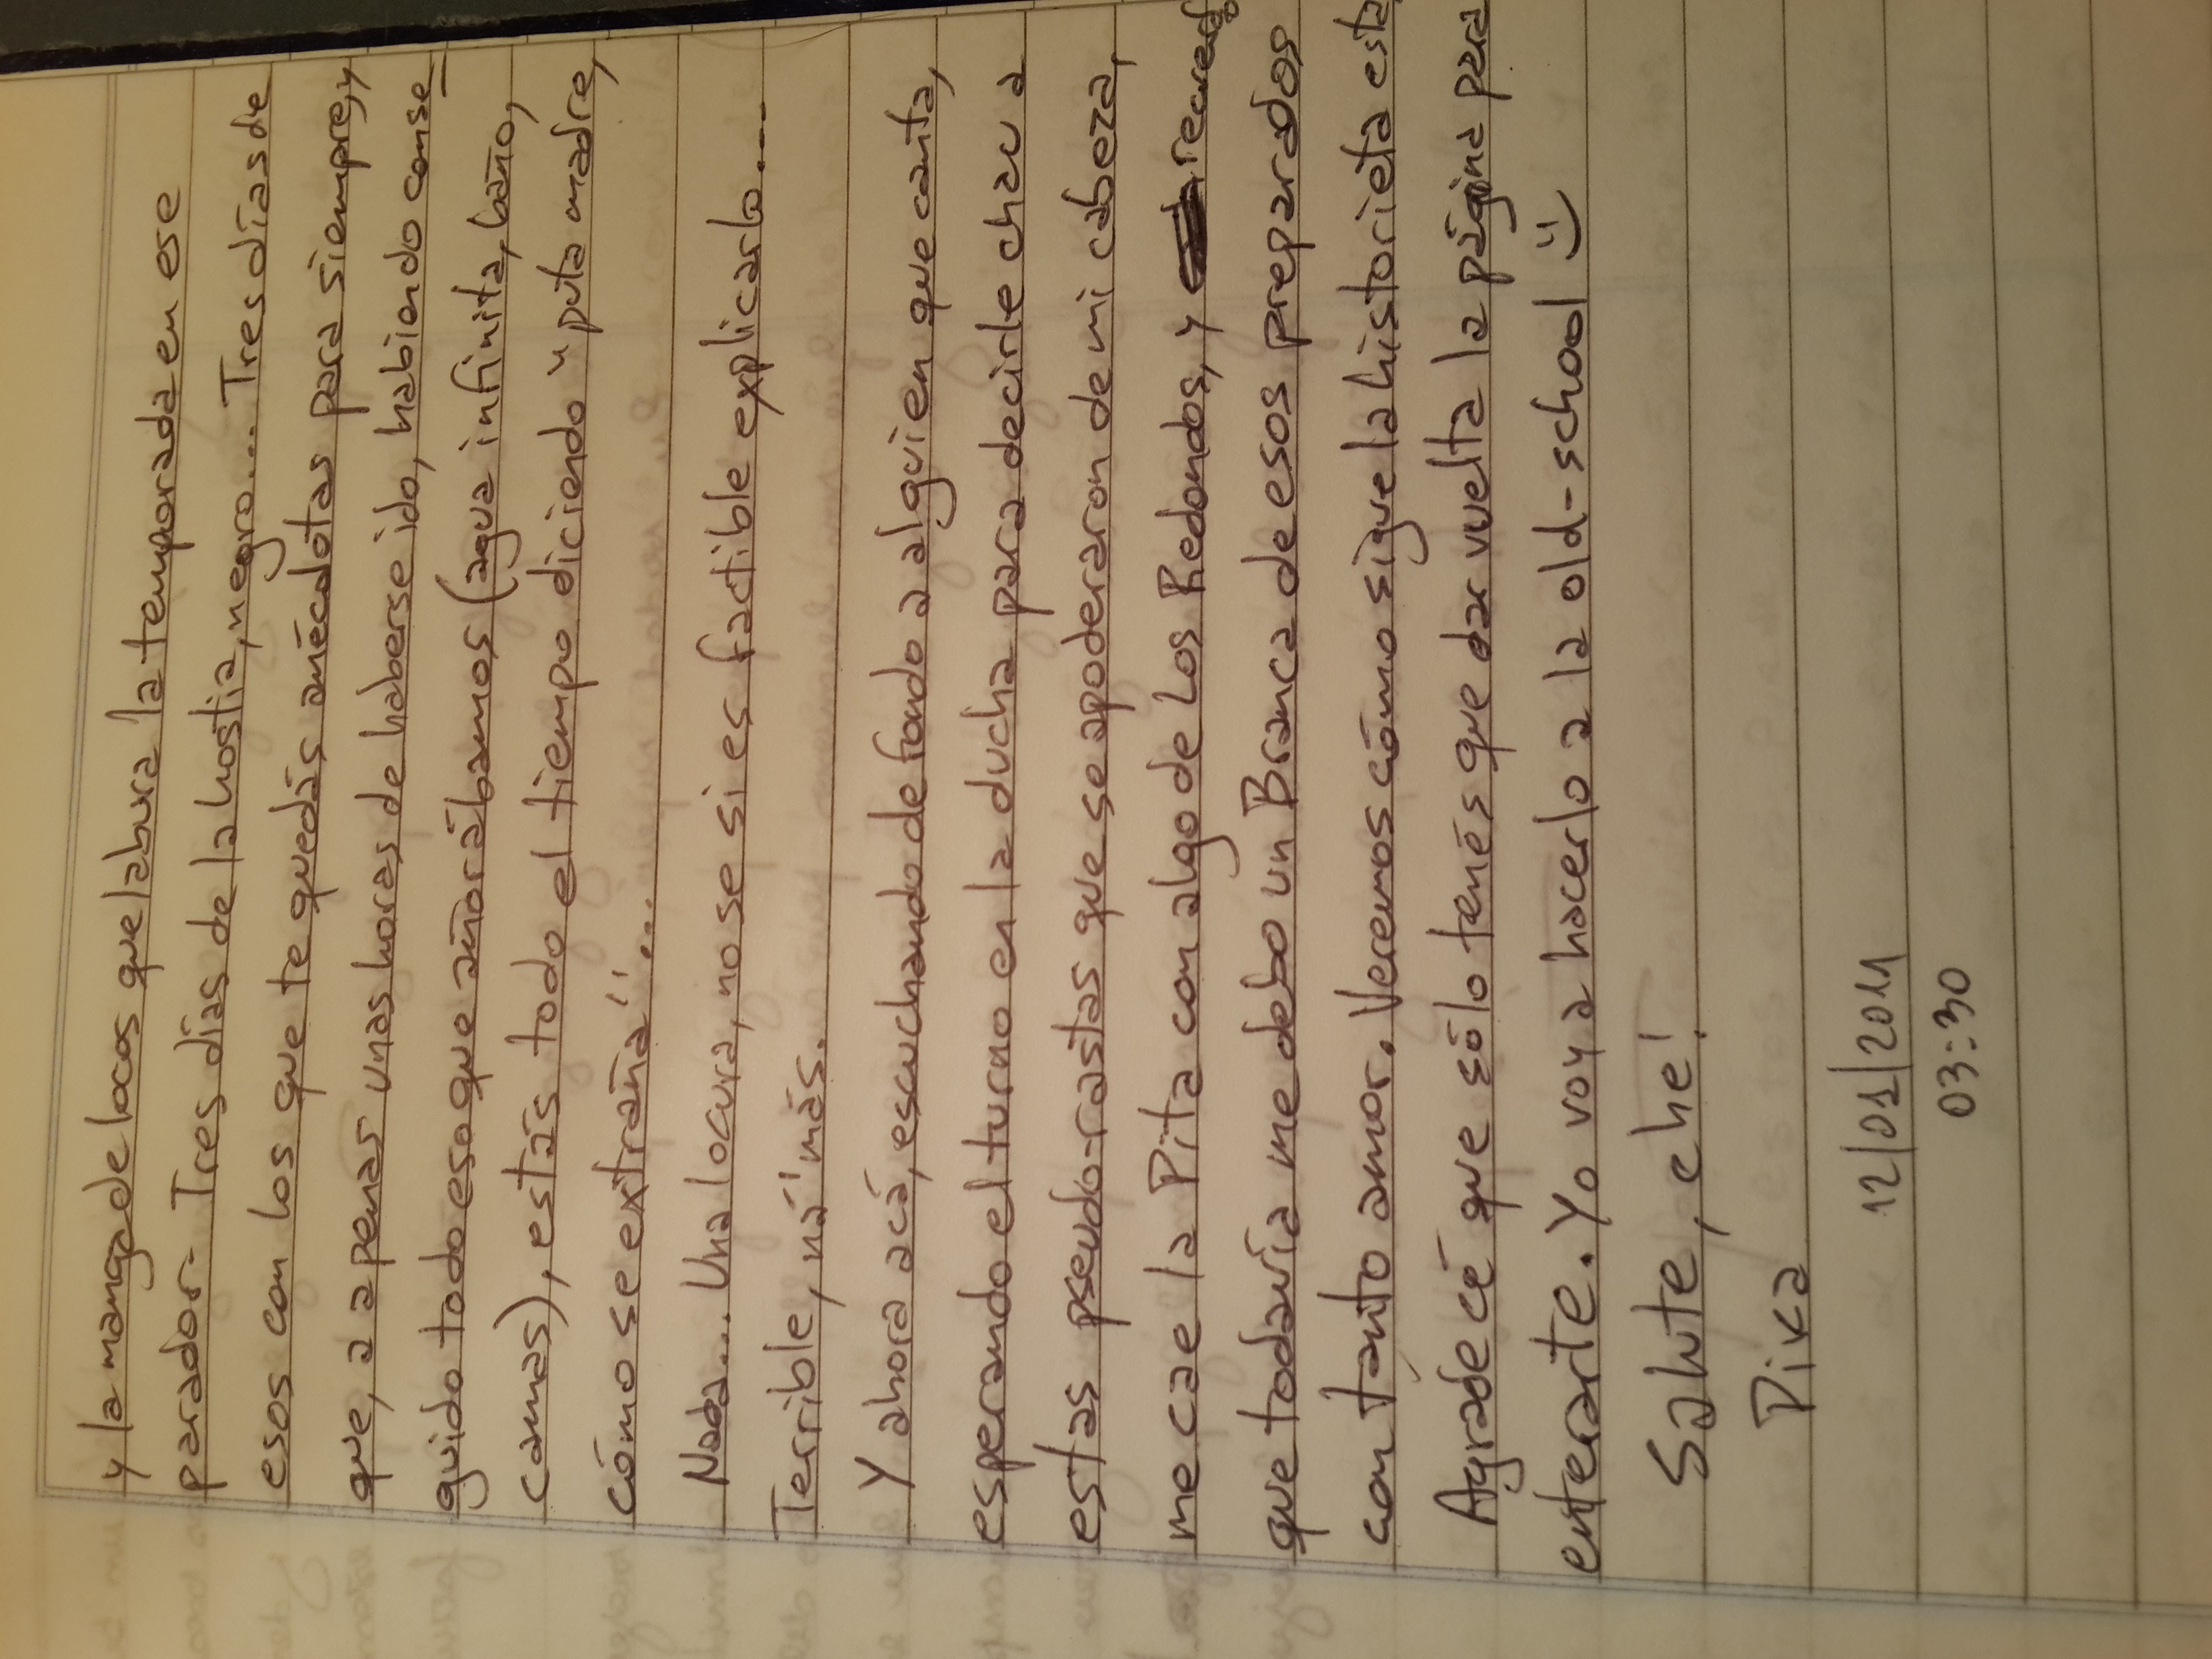 y la manga de locos que labura la temporada en ese
parador- Tres días de la hostia, negro... Tres días de
esos con los que te quedás anécdotas para siempre, y
que, a apenas unas horas de haberse ido, habiendo conse-
guido todo eso que añorábamos (agua infinita, baño,
camas), estás todo el tiempo diciendo "puta madre,
cómo se extraña"...
Nada... Una locura, no se si es factible explicarlo...
Terrible, ná' más.
Y ahora acá, escuchando de fondo a alguien que canta,
esperando el turno en la ducha para decirle chau a
estas pseudo-rastas que se apoderaron de mi cabeza,
me cae la Pita con algo de Los Redondos, y recuerdo
que todavía me debo un Branca de esos preparados
con tanto amor. Veremos cómo sigue la historieta esta.
Agradecé que sólo tenés que dar vuelta la página para
enterarte. Yo voy a hacerlo a la old-school :)
Salute, che!
Pika
12/01/2011
03:30